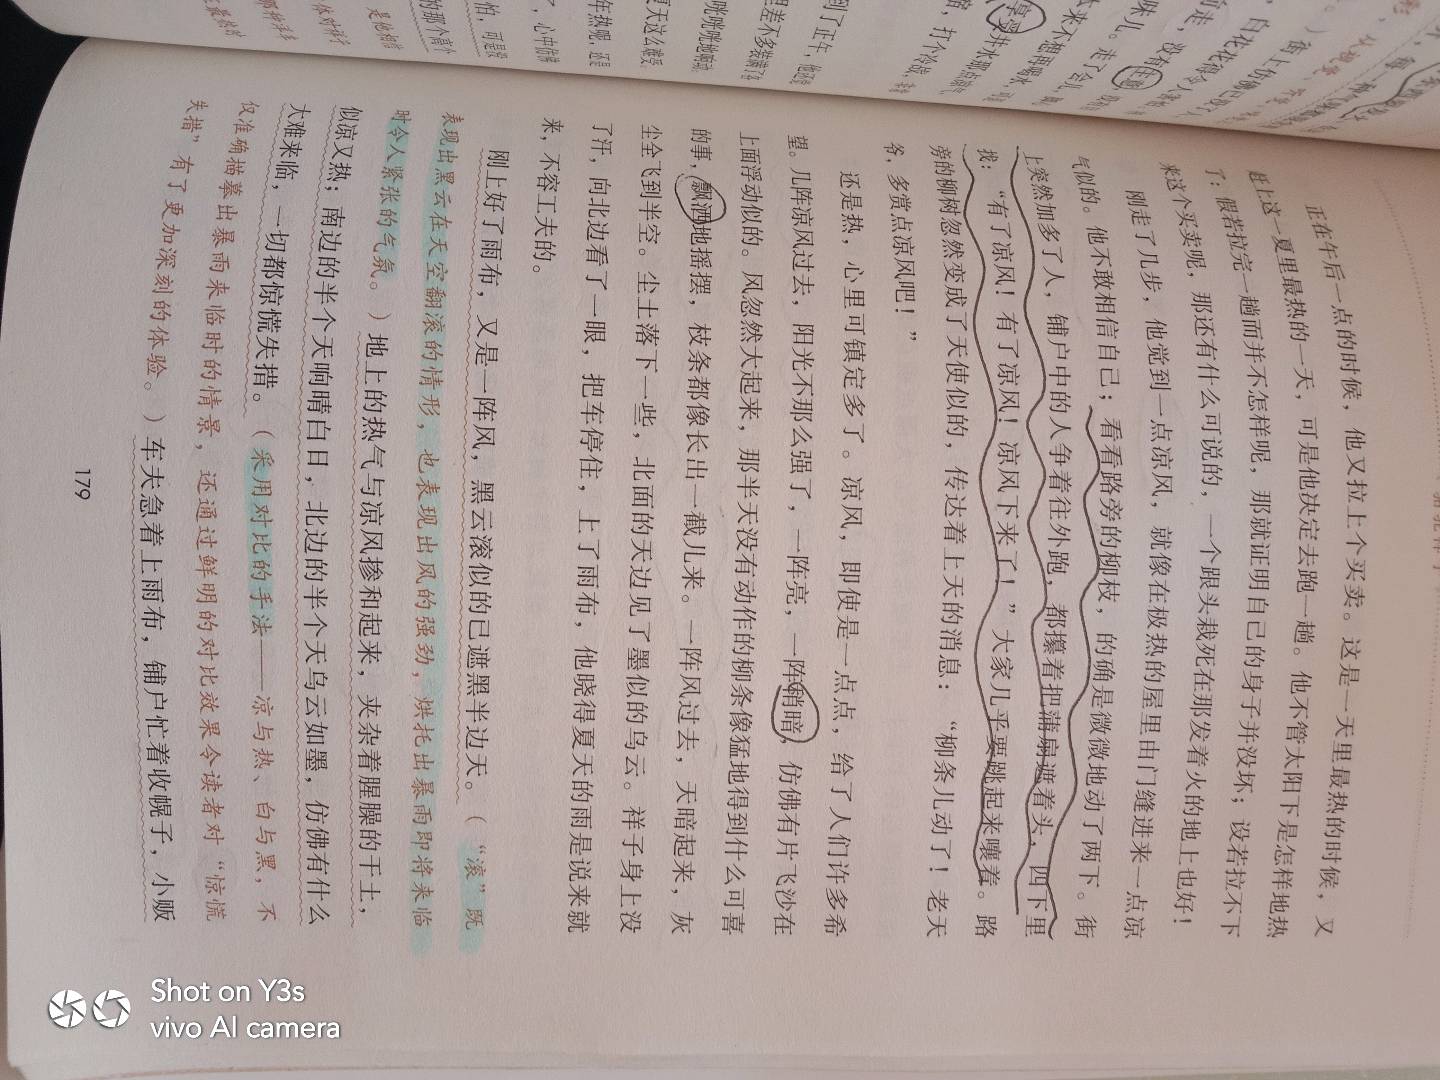 正在午后一点的时候，他又拉上个买卖。这是一天里最热的时候，又
赶上这一夏里最热的一天，可是他决定去跑一趟。他不管太阳下是怎样地热
了：假若拉完一趟而并不怎样呢，那就证明自己的身子并没坏；设若拉不下
来这个买卖呢，那还有什么可说的，一个跟头栽死在那发着火的地上也好！
刚走了几步，他觉到一点凉风，就像在极热的屋里由门缝进来一点凉
气似的。他不敢相信自己；看看路旁的柳枝，的确是微微地动了两下。街
上突然加多了人，铺户中的人争着往外跑，都攥着把蒲扇遮着头，四下里
找：“有了凉风！有了凉风！凉风下来了！”大家几乎要跳起来嚷着。路
旁的柳树忽然变成了天使似的，传达着上天的消息：“柳条儿动了！老天
爷，多赏点凉风吧！”
还是热，心里可镇定多了。凉风，即使是一点点，给了人们许多希
望。几阵凉风过去，阳光不那么强了，一阵亮，一阵稍暗，仿佛有片飞沙在
上面浮动似的。风忽然大起来，那半天没有动作的柳条像猛地得到什么可喜
的事，飘洒地摇摆，枝条都像长出一截儿来。一阵风过去，天暗起来，灰
尘全飞到半空。尘土落下一些，北面的天边见了墨似的乌云。祥子身上没
了汗，向北边看了一眼，把车停住，上了雨布，他晓得夏天的雨是说来就
来，不容工夫的。
刚上好了雨布，又是一阵风，黑云滚似的已遮黑半边天。（“滚”既
表现出黑云在天空翻滚的情形，也表现出风的强劲，烘托出暴雨即将来临
时令人紧张的气氛。）地上的热气与凉风掺和起来，夹杂着腥臊的干土，
似凉又热；南边的半个天响晴白日，北边的半个天乌云如墨，仿佛有什么
大难来临，一切都惊慌失措。（采用对比的手法——凉与热、白与黑，不
仅准确描摹出暴雨来临时的情景，还通过鲜明的对比效果令读者对“惊慌
失措”有了更加深刻的体验。）车夫急着上雨布，铺户忙着收幌子，小贩
179
Shot on Y3s
vivo AI camera